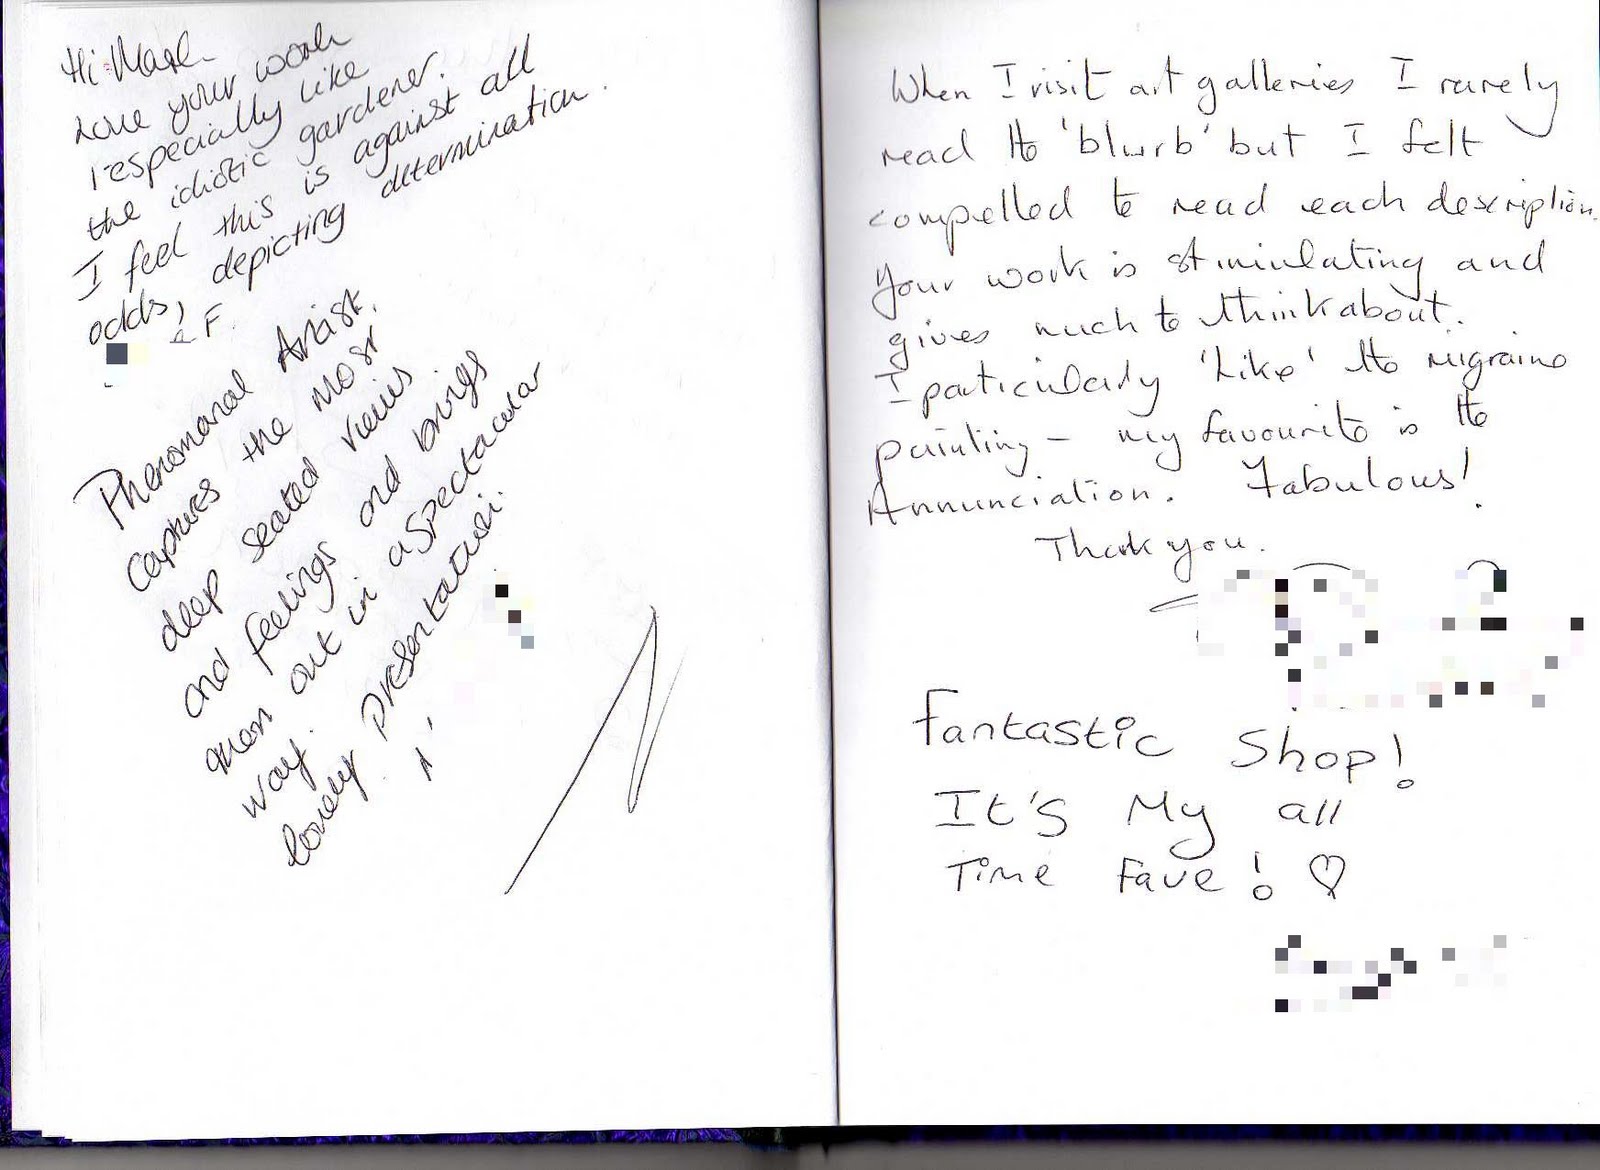 Hi Mark
Love your work
I especially like
the idiotic gardener.
I feel this is against all
odds, depicting determination.
F.
Phenomanal Artist.
Captures the most
deep seated views
and feelings and brings
them out in a spectacular
way.
lovely presentation.
When I visit art galleries I rarely
read the 'blurb' but I felt
compelled to read each description.
Your work is stimulating and
gives much to think about.
I particularly 'like' the migraine
painting - my favourite is the
Annunciation. Fabulous!
Thank you.
Fantastic Shop!
It's My all
Time Fave! ♡